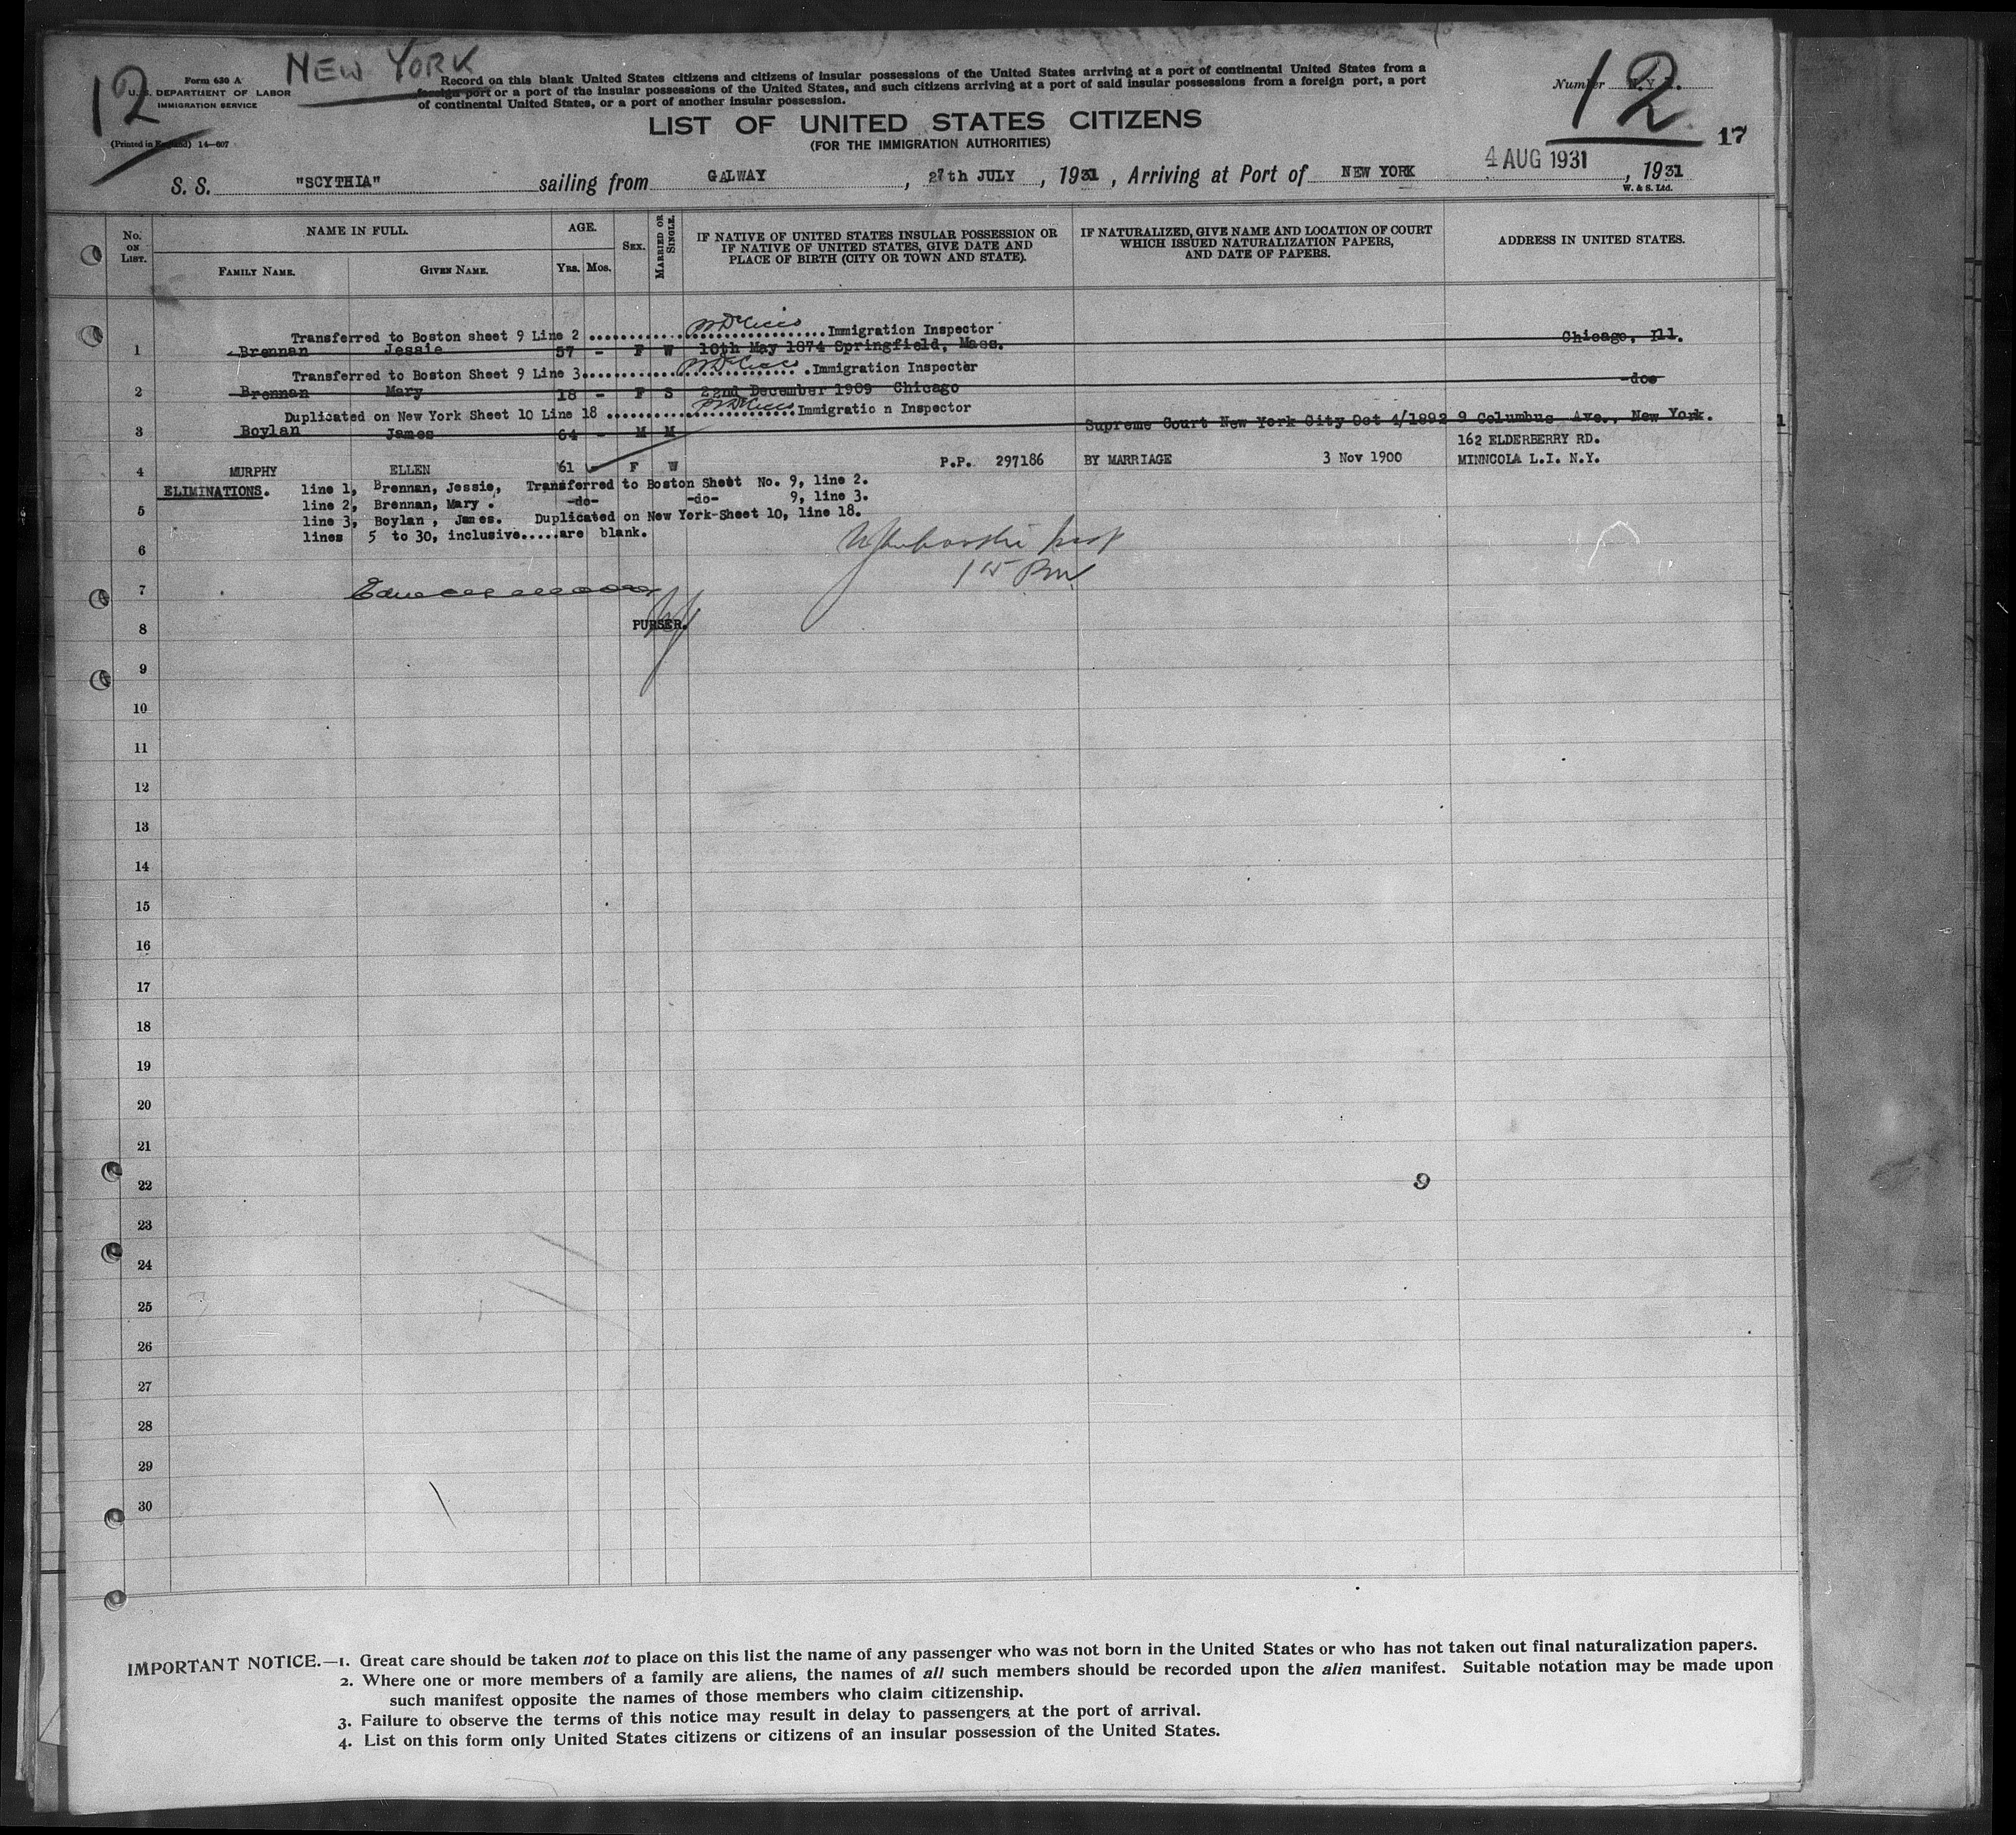 12
NEW YORK
Form 630 A
U.S. DEPARTMENT OF LABOR
IMMIGRATION SERVICE
(Printed in England) 14—607
Record on this blank United States citizens and citizens of insular possessions of the United States arriving at a port of continental United States from a
foreign port or a port of the insular possessions of the United States, and such citizens arriving at a port of said insular possessions from a foreign port, a port
of continental United States, or a port of another insular possession.
Number N.Y.
12
17
LIST OF UNITED STATES CITIZENS
(FOR THE IMMIGRATION AUTHORITIES)
S. S. "SCYTHIA" sailing from GALWAY, 27th JULY, 1931, Arriving at Port of NEW YORK 4 AUG 1931, 1931
W. & S. Ltd.
No. ON LIST.
NAME IN FULL.
FAMILY NAME.
GIVEN NAME.
AGE.
YRS. MOS.
SEX.
MARRIED OR SINGLE.
IF NATIVE OF UNITED STATES INSULAR POSSESSION OR
IF NATIVE OF UNITED STATES, GIVE DATE AND
PLACE OF BIRTH (CITY OR TOWN AND STATE).
IF NATURALIZED, GIVE NAME AND LOCATION OF COURT
WHICH ISSUED NATURALIZATION PAPERS,
AND DATE OF PAPERS.
ADDRESS IN UNITED STATES.
Transferred to Boston sheet 9 Line 2 ........................ Immigration Inspector
1 Brennan Jessie 57 - F W 10th May 1874 Springfield, Mass. Chicago, Ill.
Transferred to Boston Sheet 9 Line 3........................ Immigration Inspector
2 Brennan Mary 18 - F S 22nd December 1909 Chicago -do-
Duplicated on New York Sheet 10 Line 18 ........................ Immigratio n Inspector
3 Boylan James 64 - M M Supreme Court New York City Oct 4/1892 9 Columbus Ave., New York. 1
162 ELDERBERRY RD.
4 MURPHY ELLEN 61 - F W P.P. 297186 BY MARRIAGE 3 Nov 1900 MINNCOLA L.I. N.Y.
ELIMINATIONS. line 1, Brennan, Jessie, Transferred to Boston Sheet No. 9, line 2.
line 2, Brennan, Mary. -do- -do- 9, line 3.
5
line 3, Boylan, James. Duplicated on New York-Sheet 10, line 18.
lines 5 to 30, inclusive.....are blank.
6
1 15 PM
7
8 PURSER.
9
10
11
12
13
14
15
16
17
18
19
20
21
22 9
23
24
25
26
27
28
29
30
IMPORTANT NOTICE.—1. Great care should be taken not to place on this list the name of any passenger who was not born in the United States or who has not taken out final naturalization papers.
2. Where one or more members of a family are aliens, the names of all such members should be recorded upon the alien manifest. Suitable notation may be made upon
such manifest opposite the names of those members who claim citizenship.
3. Failure to observe the terms of this notice may result in delay to passengers at the port of arrival.
4. List on this form only United States citizens or citizens of an insular possession of the United States.